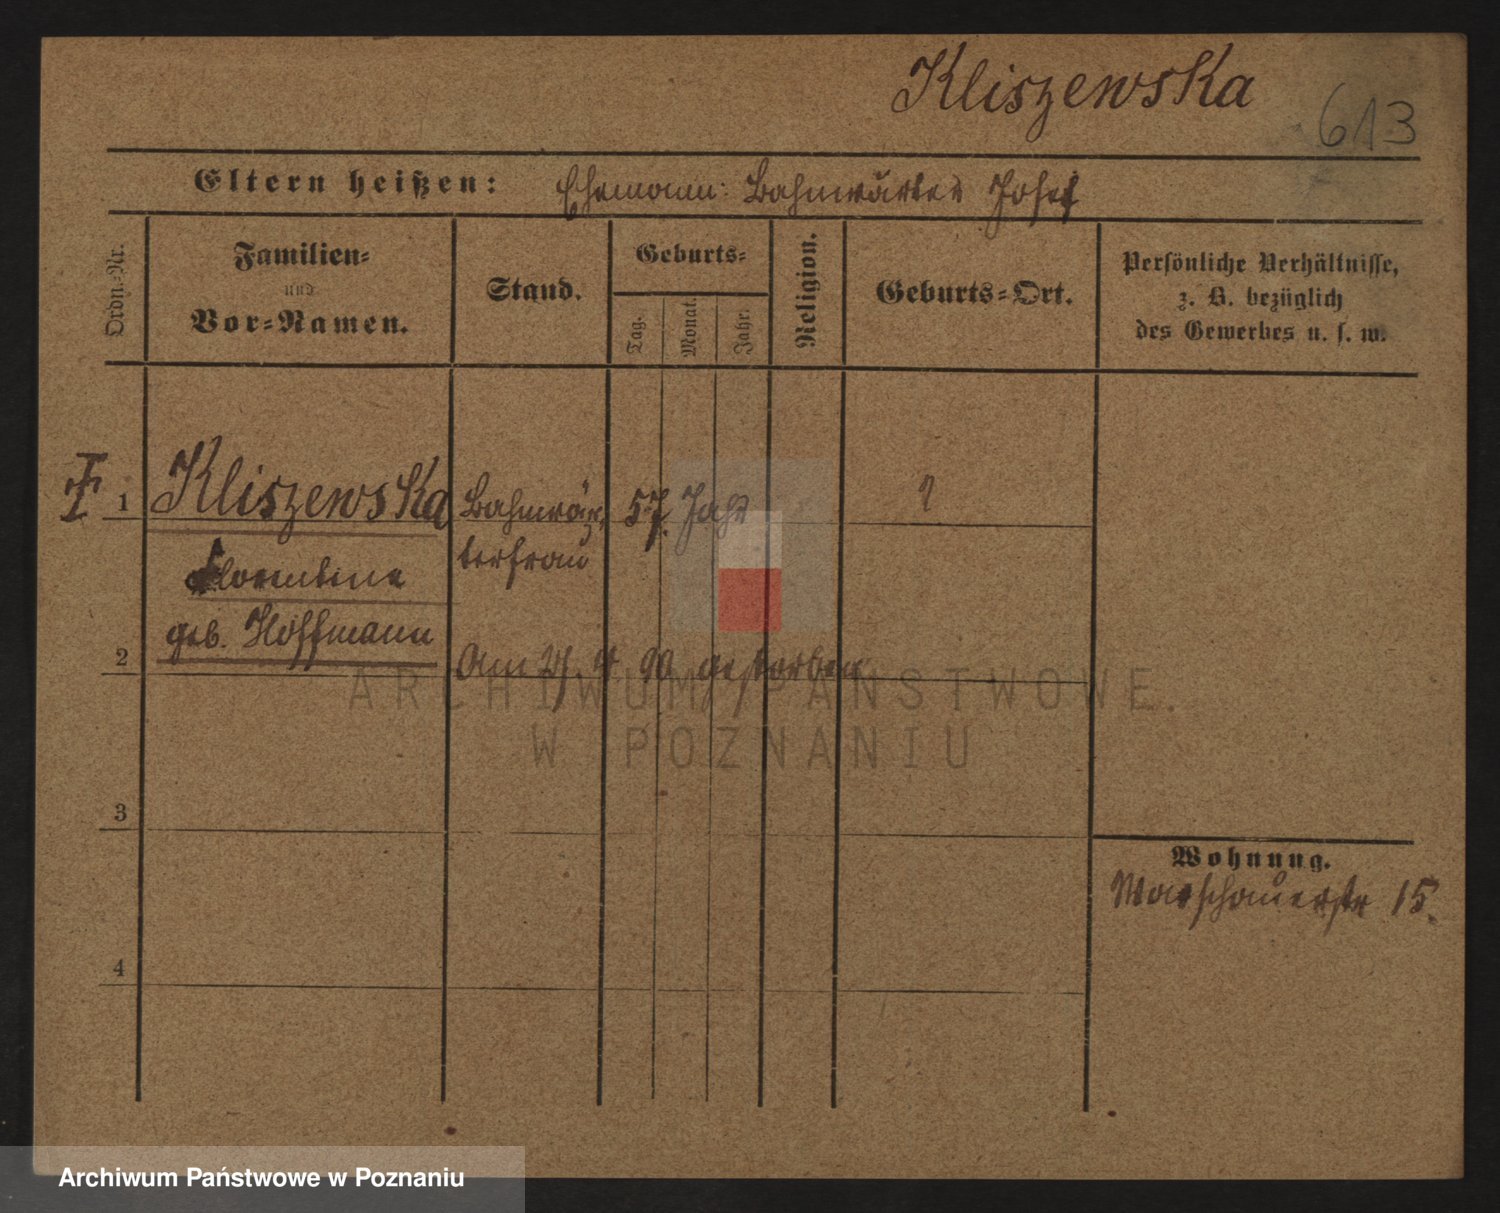 Kliszewska
613
Eltern heißen: Ehemann: Bahnwärter Josef
Ordn.-Nr.
Familien-
und
Vor-Namen.
Stand.
Geburts-
Tag.
Monat.
Jahr.
Religion.
Geburts-Ort.
Persönliche Verhältnisse,
z. B. bezüglich
des Gewerbes u. s. w.
1
Kliszewska
Bahnwär-
57. Jahr
?
terfrau
Florentine
geb. Hoffmann
2
Am 4. 90 gestorben
ARCHIWUM PAŃSTWOWE
W POZNANIU
3
Wohnung.
Warschauerstr 15.
4
Archiwum Państwowe w Poznaniu